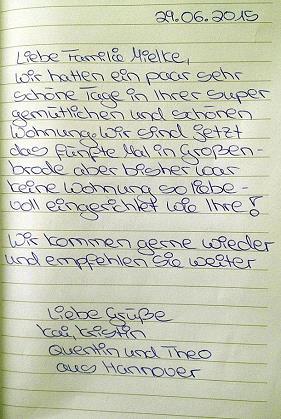 29.06.2015
Liebe Familie Mielke,
wir hatten ein paar sehr
schöne Tage in Ihrer super
gemütlichen und schönen
Wohnung. Wir sind jetzt
das fünfte Mal in Großen-
brode aber bisher war
keine Wohnung so liebe-
voll eingerichtet wie Ihre!
Wir kommen gerne wieder
und empfehlen Sie weiter
Liebe Grüße
Kai, Kristin
Quentin und Theo
aus Hannover